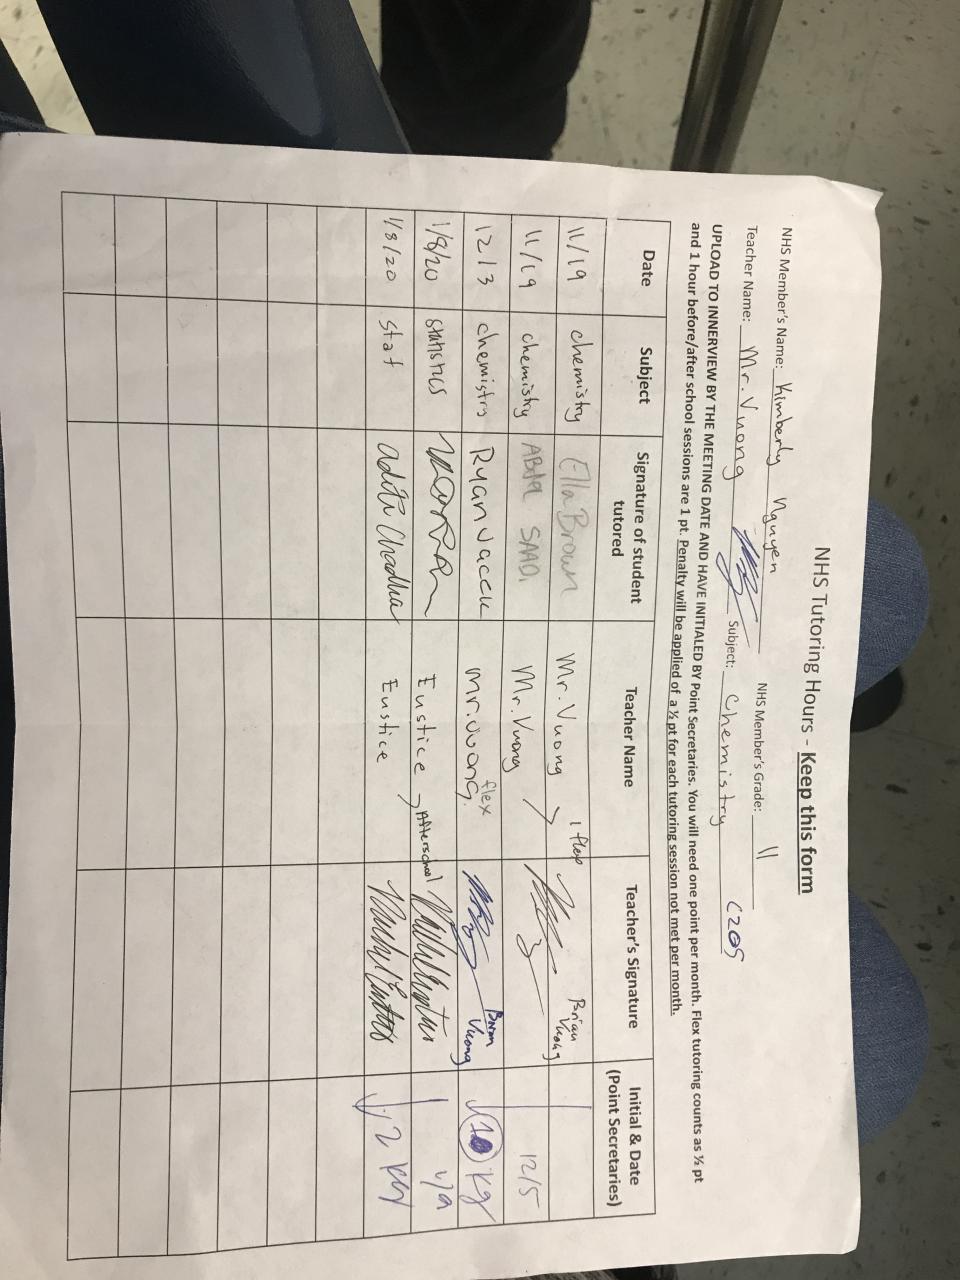 NHS Tutoring Hours - Keep this form
NHS Member's Name: Kimberly Nguyen NHS Member's Grade: 11
Teacher Name: Mr. Vuong Subject: Chemistry C205
UPLOAD TO INNERVIEW BY THE MEETING DATE AND HAVE INITIALED BY Point Secretaries. You will need one point per month. Flex tutoring counts as ½ pt
and 1 hour before/after school sessions are 1 pt. Penalty will be applied of a ½ pt for each tutoring session not met per month.
Date Subject Signature of student tutored Teacher Name Teacher's Signature Initial & Date (Point Secretaries)
11/19 chemistry Ella Brown Mr. Vuong 1 flex Brian Vuong
11/19 chemistry SAAD Mr. Vuong 12/5
12/3 chemistry Ryan Mr. Vuong flex Vuong KG
1/8/20 statistics Eustice Afterschool 1/9
1/8/20 Stat Aditi Chadha Eustice 2 KG